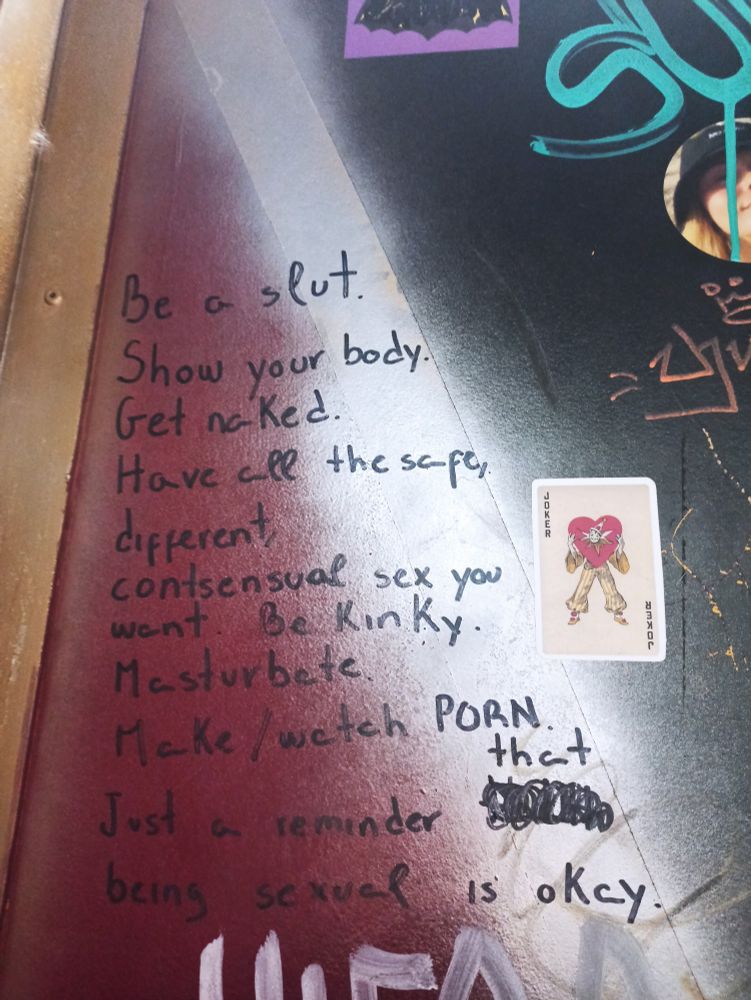 Be a slut.
Show your body.
Get naked.
Have all the safe,
different,
contsensual sex you
want Be Kinky.
Masturbate.
Make/watch PORN.
that
Just a reminder
being sexual is okay.
JOKER
JOKER